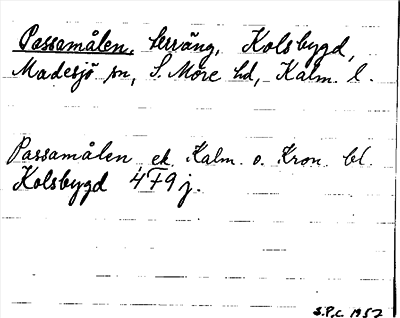 Passamålen, terräng, Kolsbygd,
Madesjö sn, S. Möre hd, Kalm. l.
Passamålen ek. Kalm. o. Kron. bl.
Kolsbygd 4F9j.
S.P.c. 1957